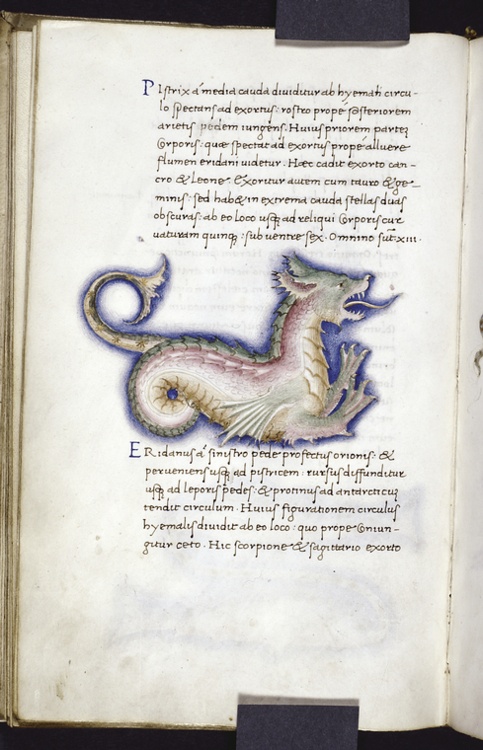 PIstrix á media cauda diuiditur ab hyemali circu-
lo spectans ad exortus: rostro prope posteriorem
arietis pedem iungens. Huius priorem partem
Corporis: quæ spectat ad exortus prope alluere
flumen eridani uidetur. Hæc cadit exorto can-
cro & leone. Exoritur autem cum tauro & ge-
minis: sed habet in extrema cauda stellas duas
obscuras: ab eo loco usq; ad reliqui Corporis cur
uaturam quinq; : sub uentre sex. Omnino sūt. xiii.
ERidanus á sinistro pede profectus orionis: &
perueniens usq; ad pistricem: rursus diffunditur
usq; ad leporis pedes: & protinus ad antarcticuȝ
tendit circulum. Huius figurationem circulus
hyemalis diuidit ab eo loco: quo prope Coniun-
gitur ceto. Hic scorpione & sagittario exorto